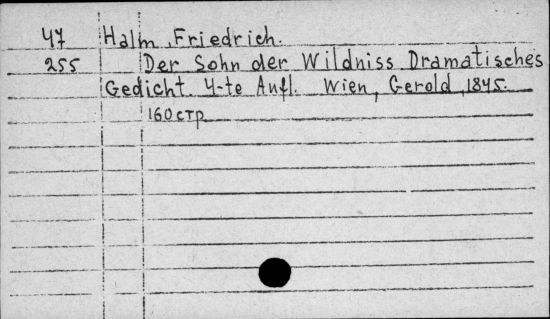 47 Halm, Friedrich.
255 Der Sohn der Wildniss Dramatisches
Gedicht. 4-te Aufl. Wien, Gerold, 1845.
160 стр